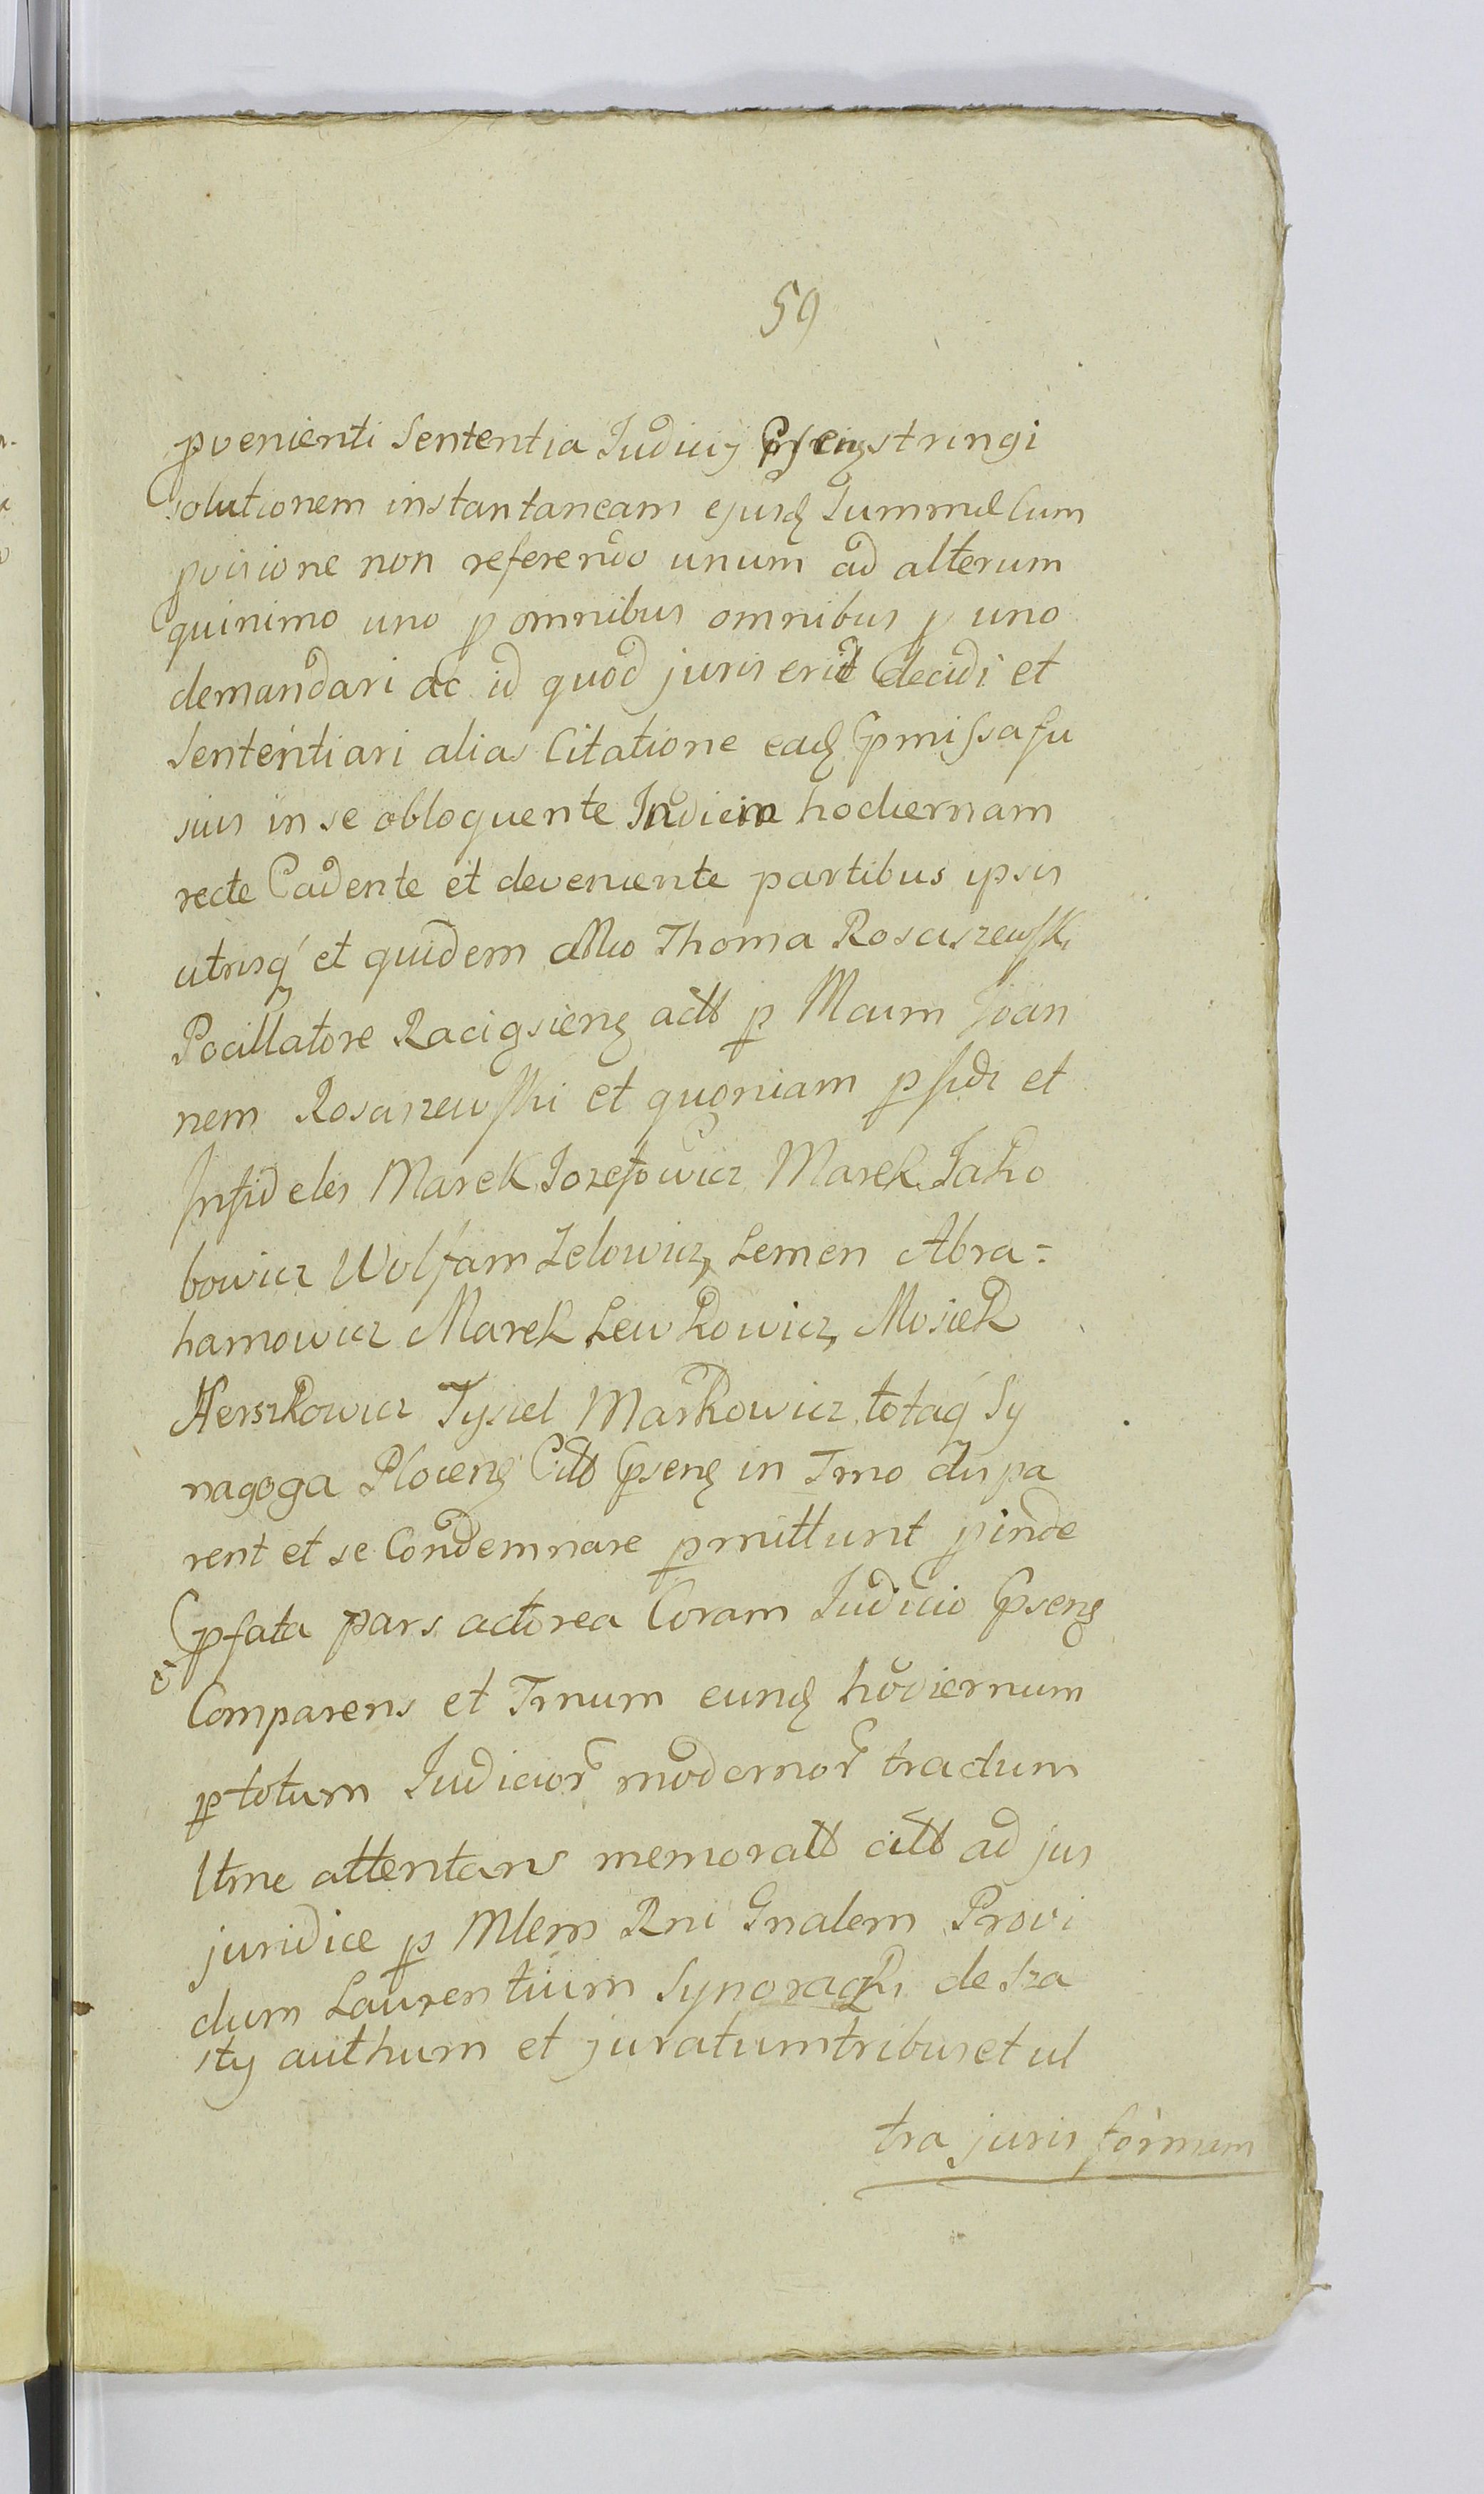 59
pvenienti Sententia Judicij Psenz stringi
solutionem instantaneam ejusd Summe cum
pvisione non referendo unum ad alterum
quinimo uno p omnibus omnibus p uno
demandari ac id quod juris erit decidi et
Sententiari alias Citatione ead pmissa fu
sius in se obloquente In diem hodiernam
recte Cadente et deveniente partibus ipsis
utrisq et quidem Mco Thoma Rosciszewski
Pocillatore Raciąsieng actt p Mcum Joan
nem Rosciszewski et quoniam pfidi et
Infideles Marek Jozefowicz Marek Jako
bowicz Wolfam Lelowicz, Lemen Abra=
hamowicz Marek Lewkowicz, Mosiek
Herszkowicz Jysiel Markowicz totaq Sy
nagoga Plocens Citt psens in Tmo dispa
rent et se Condemnare pmittunt pinde
pfata pars actorea Coram Judicio psens
Comparens et Tmum eund hodiernum
p totum Judicior modernor tractum
ltme attentans memoratt citt ad jus
juridice p Mlem Rni Gnalem Provi
dum Laurentium de Sza
sty authum et juratum tribus et ul
tra juris formam